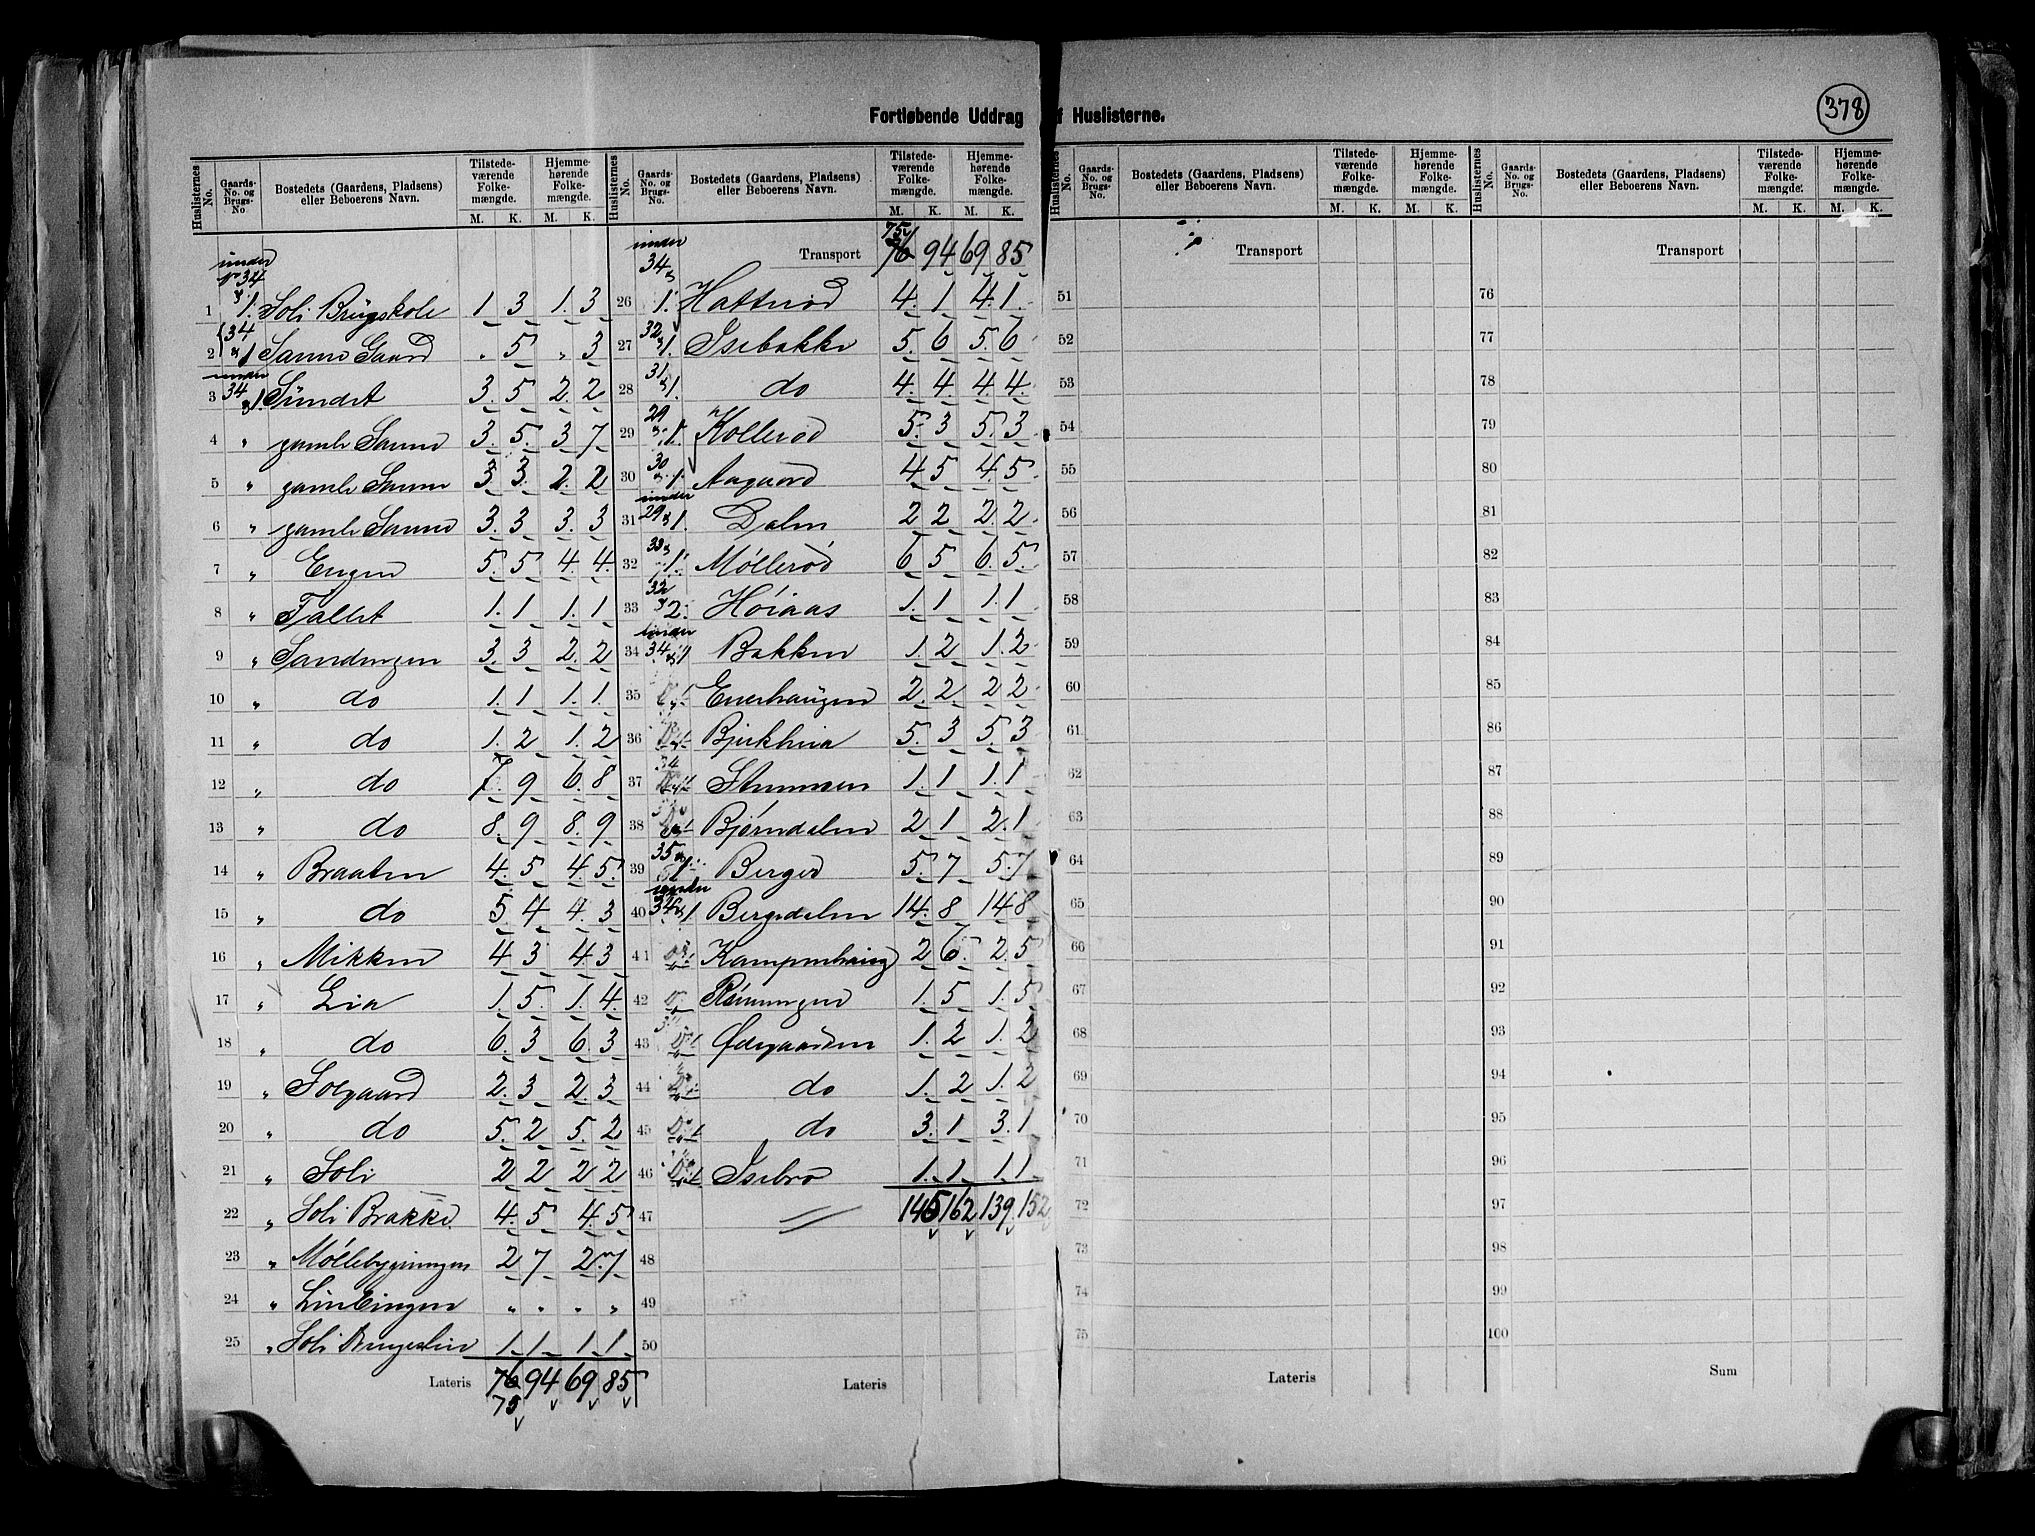 Fortløbende Uddrag af Huslisterne.
378
Huslisternes No.
Gaards-No. og Brugs-No
Bostedets (Gaardens, Pladsens) eller Beboerens Navn.
Tilstede-værende Folke-mængde.
Hjemme-hørende Folke-mængde.
M. K. M. K.
under 34 1
1 Soli Brugskole 1 3 1 3
2 34 1 Sanne Gaard " 5 " 3
under
3 34 1. Sundet 3 5 2 2
4 " gamle Sanne 3 5 3 7
5 " gamle Sanne 3 3 2 2
6 " gamle Sanne 3 3 3 3
7 " Engen 5 5 4 4
8 " Fallet 1 1 1 1
9 " Sandingen 3 3 2 2
10 " do 1 1 1 1
11 " do 1 2 1 2
12 " do 7 9 6 8
13 " do 8 9 8 9
14 " Braaten 4 5 4 5
15 " do 5 4 4 3
16 " Mikken 4 3 4 3
17 " Lia 1 5 1 4
18 " do 6 3 6 3
19 " Solgaard 2 3 2 3
20 " do 5 2 5 2
21 " Soli 2 2 2 2
22 " Soli Brakke 4 5 4 5
23 " Møllebygningen 2 7 2 7
24 " " " " "
25 " Soli 1 1 1 1
Lateris 76 94 69 85
75
Huslisternes No.
Gaards-No. og Brugs-No.
Bostedets (Gaardens, Pladsens) eller Beboerens Navn.
Tilstede-værende Folke-mængde.
Hjemme-hørende Folke-mængde.
M. K. M. K.
75
under 34 Transport 76 94 69 85
26 1. Hattrød 4 1 4 1
27 32 1. Isebakke 5 6 5 6
28 31 1. do 4 4 4 4
29 29 1. Kollerød 5 3 5 3
30 30 1. Aagaard 4 5 4 5
under
31 29 1. Dalen 2 2 2 2
32 33 1. Møllerød 6 5 6 5
33 32 2. Høiaas 1 1 1 1
under
34 34 1 Bakken 1 2 1 2
35 Enerhaugen 2 2 2 2
36 Bjerkheia 5 3 5 3
37 Stemmen 1 1 1 1
38 Bjørndalen 2 1 2 1
39 35 1. Bergerd 5 7 5 7
under
40 34 1 Bergsdalen 14 8 14 8
41 Kampenhaug 2 6 2 5
42 Rønningen 1 5 1 5
43 Ødegaarden 1 2 1 2
44 do 1 2 1 2
45 do 3 1 3 1
46 Isebro 1 1 1 1
47 145 162 139 152
48
49
50
Lateris
Huslisternes No.
Gaards-No. og Brugs-No.
Bostedets (Gaardens, Pladsens) eller Beboerens Navn.
Tilstede-værende Folke-mængde.
Hjemme-hørende Folke-mængde.
M. K. M. K.
Transport
51
52
53
54
55
56
57
58
59
60
61
62
63
64
65
66
67
68
69
70
71
72
73
74
75
Lateris
Huslisternes No.
Gaards-No. og Brugs-No.
Bostedets (Gaardens, Pladsens) eller Beboerens Navn.
Tilstede-værende Folke-mængde.
Hjemme-hørende Folke-mængde.
M. K. M. K.
Transport
76
77
78
79
80
81
82
83
84
85
86
87
88
89
90
91
92
93
94
95
96
97
98
99
100
Sum